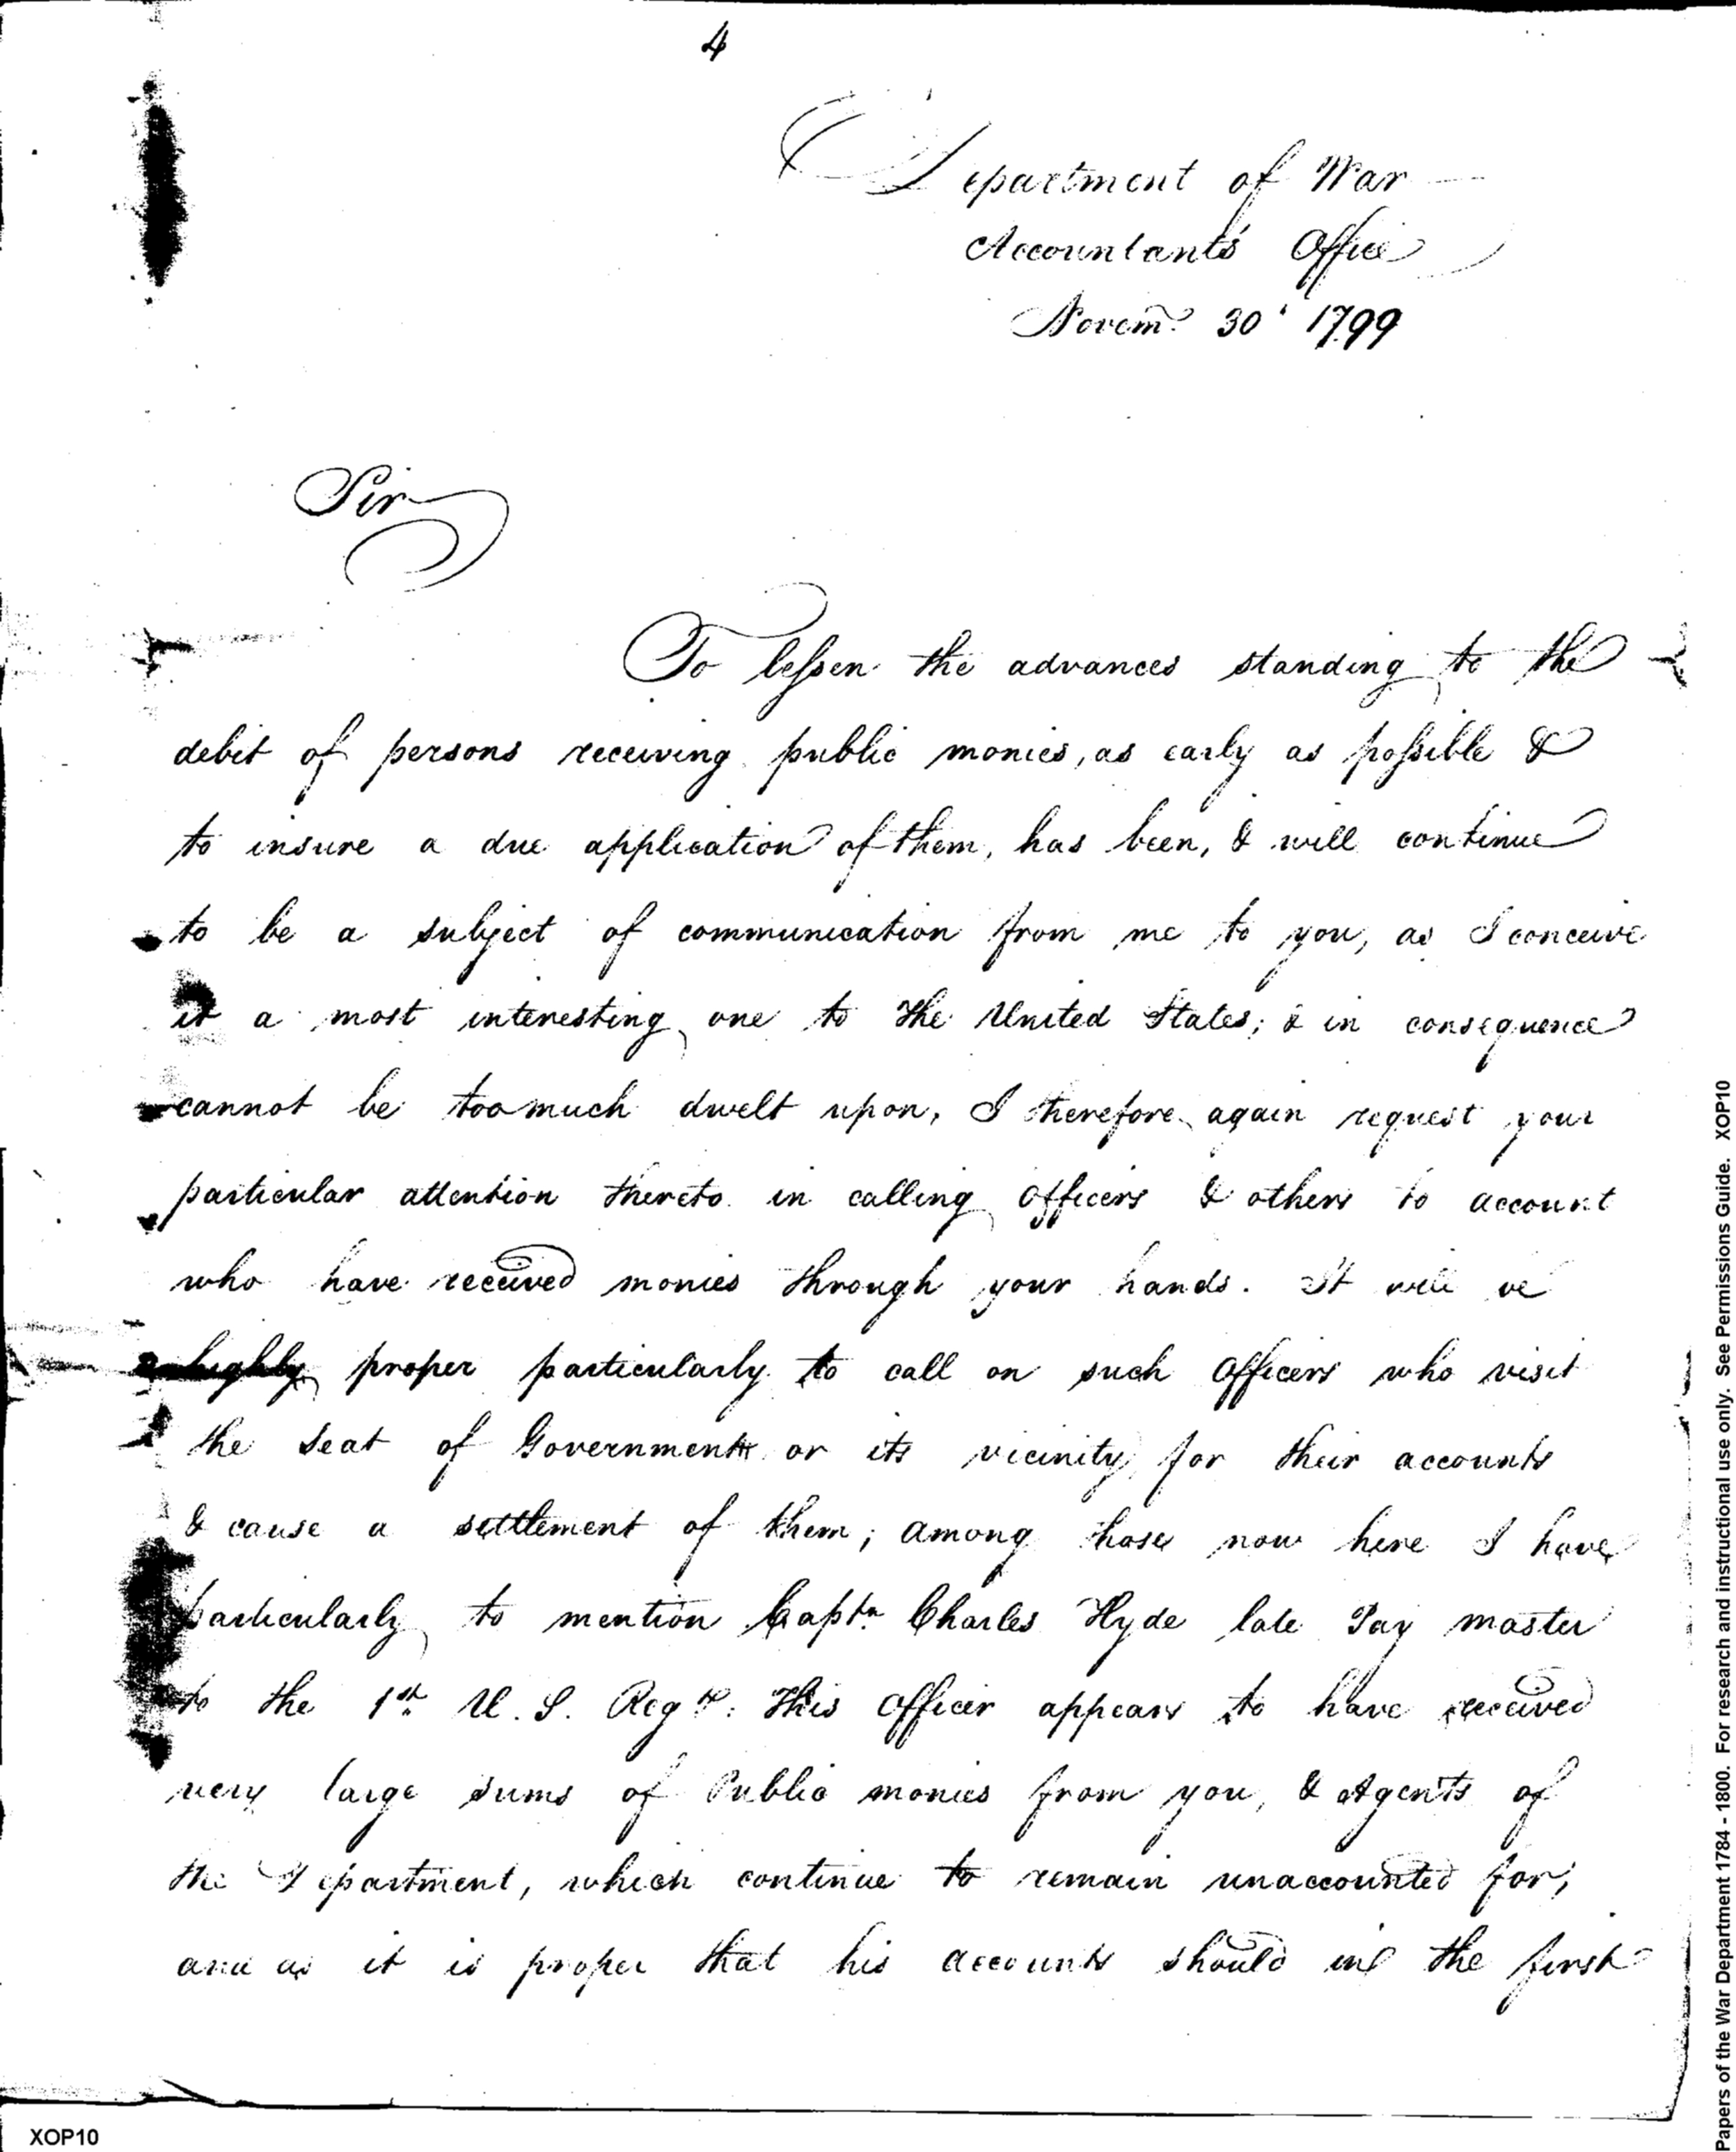 4
Department of War
Accountants Office
Novemr. 30 1799
Sir
To lessen the advances standing to the
debit of persons receiving public monies, as early as possible &
to insure a due application of them, has been, & will continue
to be a subject of communication from me to you, as I conceive
it a most interesting one to the United States; & in consequence
cannot be too much dwelt upon, I therefore again request your
particular attention thereto in calling officers & others to account
who have received monies through your hands. It will be
highly proper particularly to call on such officers who visit
the Seat of Government or its vicinity for their accounts
& cause a settlement of them; among those now here I have
particularly to mention Captn. Charles Hyde late Pay master
to the 1st. U. S. Regt. This officer appears to have received
very large sums of Public monies from you, & Agents of
the Department, which continue to remain unaccounted for;
and as it is proper that his accounts should in the first
XOP10
Papers of the War Department 1784 - 1800. For research and instructional use only. See Permissions Guide. XOP10